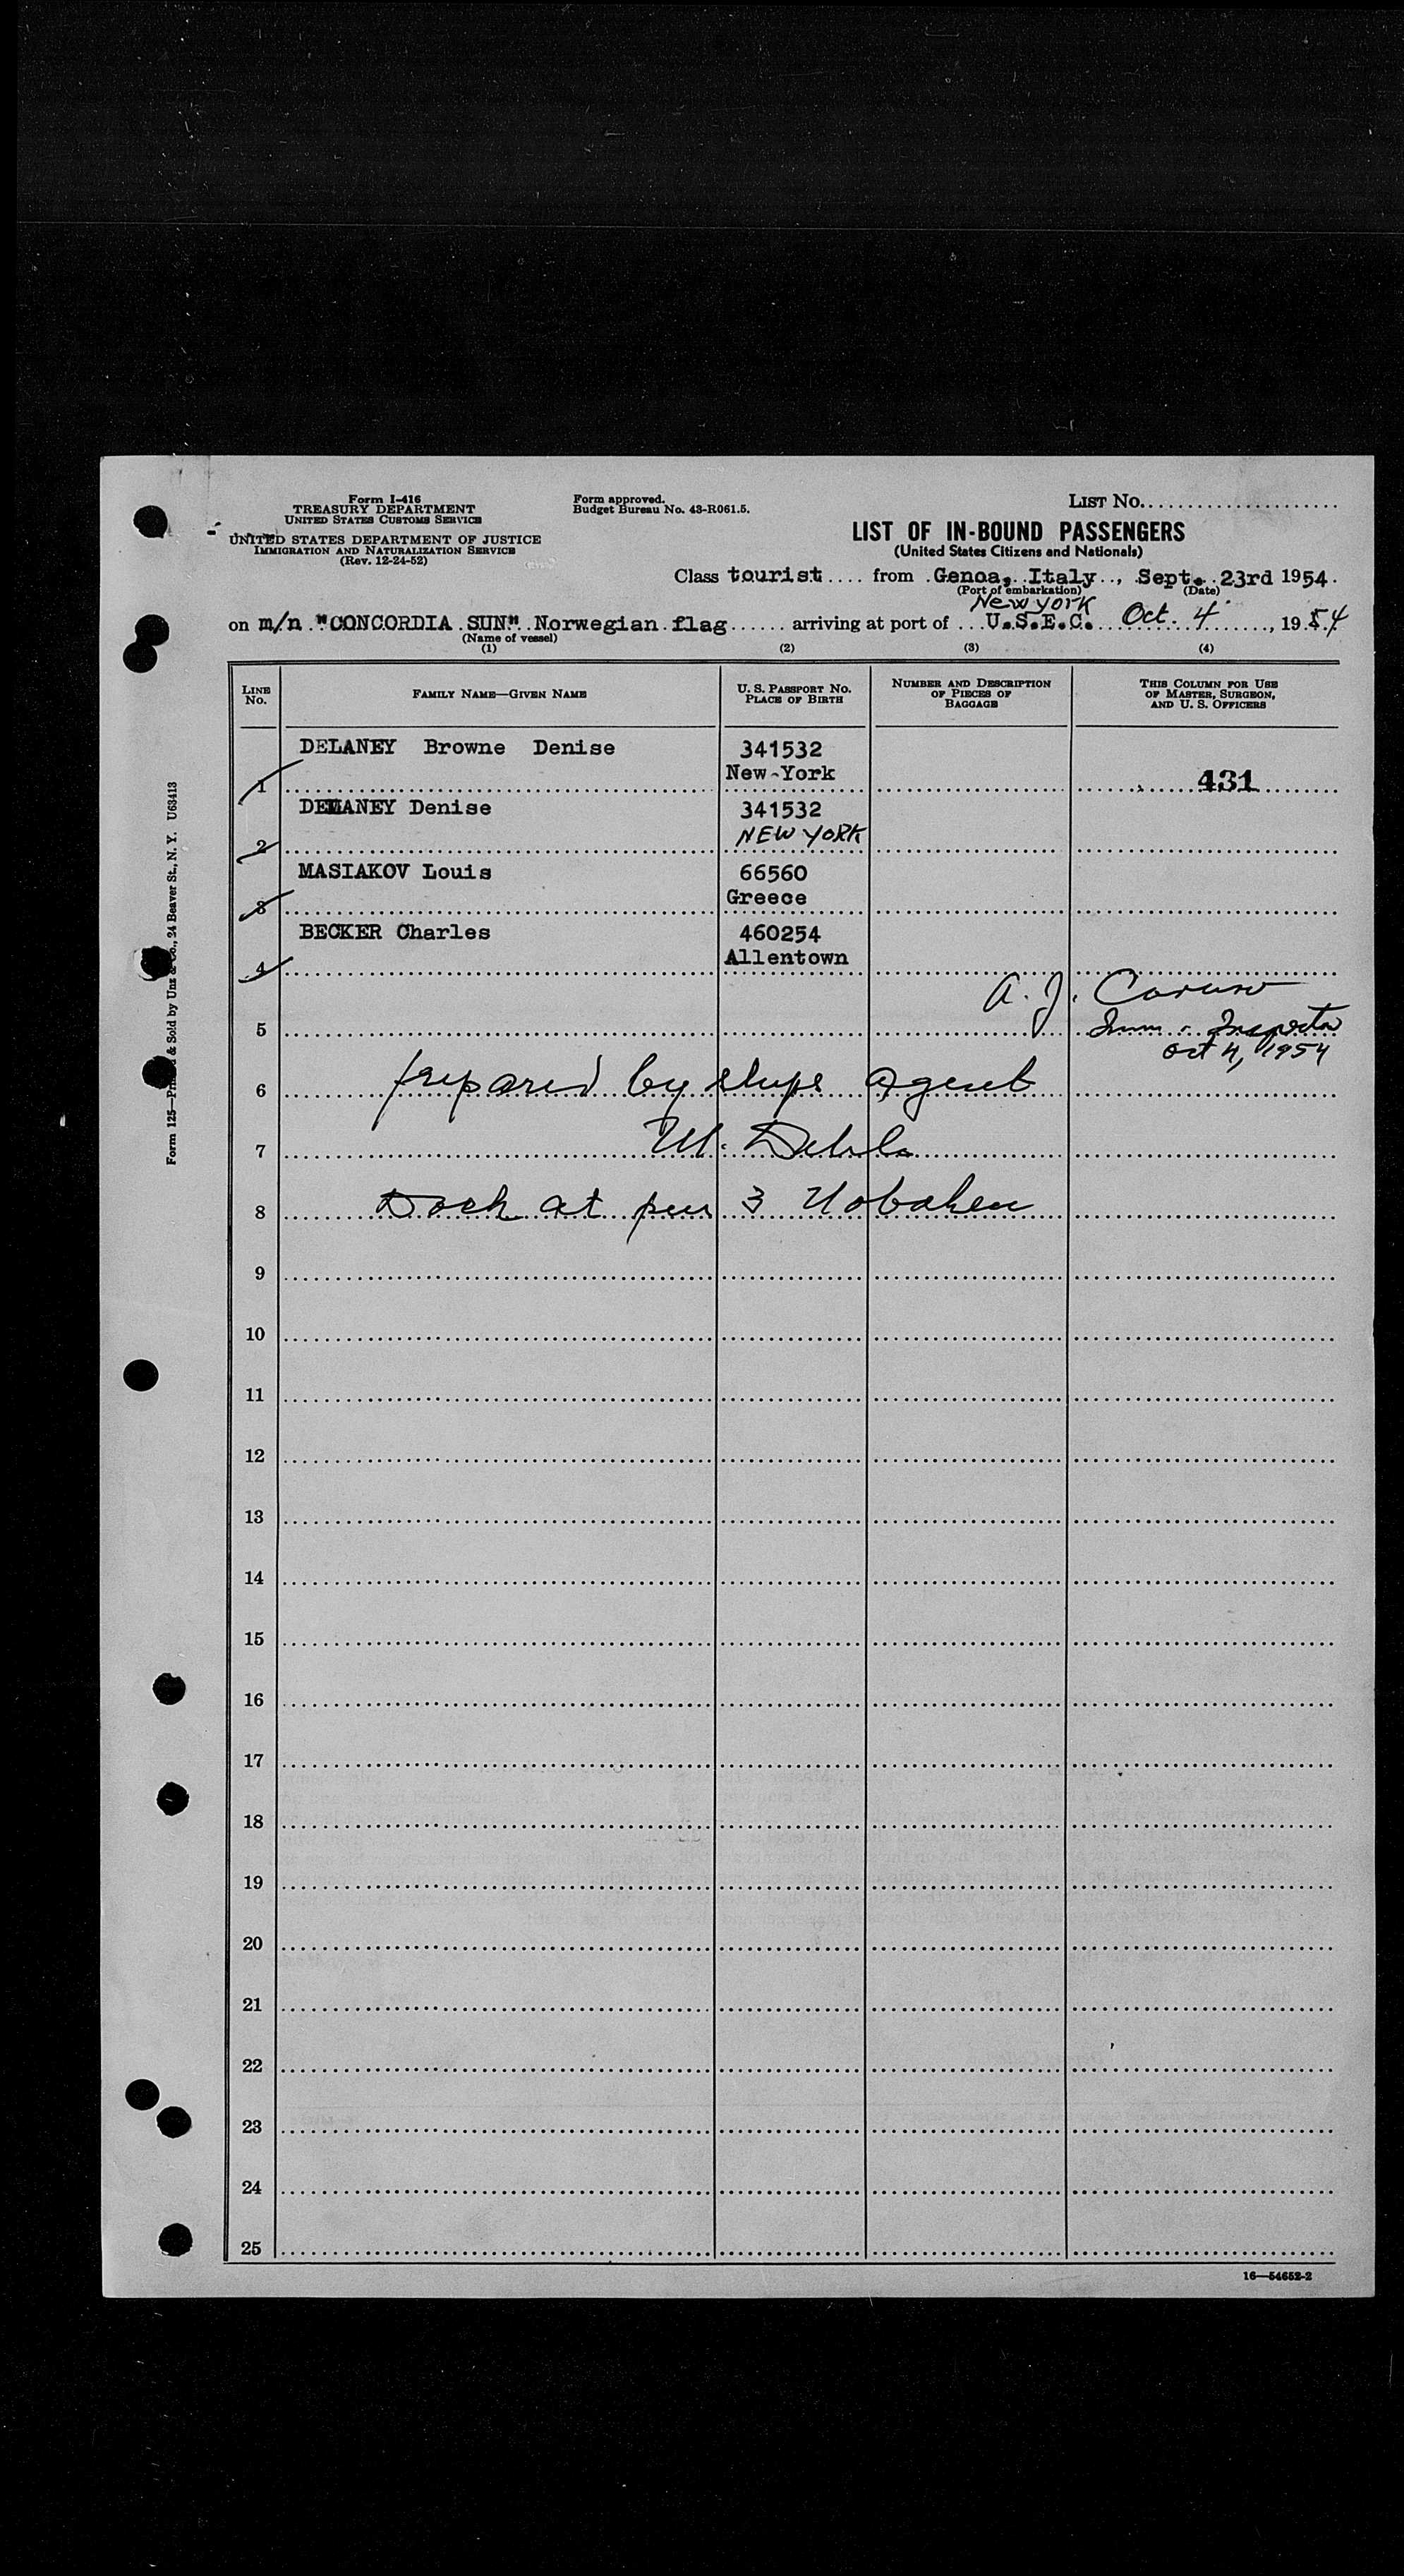 Form I-416
TREASURY DEPARTMENT
UNITED STATES CUSTOMS SERVICE
UNITED STATES DEPARTMENT OF JUSTICE
IMMIGRATION AND NATURALIZATION SERVICE
(Rev. 12-24-52)
Form approved.
Budget Bureau No. 43-R061.5.
LIST NO.
LIST OF IN-BOUND PASSENGERS
(United States Citizens and Nationals)
Class tourist from Genoa, Italy, Sept. 23rd 1954
(Port of embarkation) (Date)
New York
on m/n "CONCORDIA SUN" Norwegian flag arriving at port of U.S.E.C. Oct. 4, 1954
(Name of vessel)
(1) (2) (3) (4)
LINE NO. FAMILY NAME—GIVEN NAME U. S. PASSPORT NO. PLACE OF BIRTH NUMBER AND DESCRIPTION OF PIECES OF BAGGAGE THIS COLUMN FOR USE OF MASTER, SURGEON, AND U. S. OFFICERS
DELANEY Browne Denise 341532
1 New-York 431
DELANEY Denise 341532
2 NEW YORK
MASIAKOV Louis 66560
3 Greece
BECKER Charles 460254
4 Allentown
A. J. Caruso
5 Imm. Inspector
Oct 4, 1954
6 prepared by ships agent
7 M.
8 Dock at pier 3 Hoboken
9
10
11
12
13
14
15
16
17
18
19
20
21
22
23
24
25
16—54652-2
Form 125—Printed & Sold by Unz & Co., 24 Beaver St., N. Y. U63413